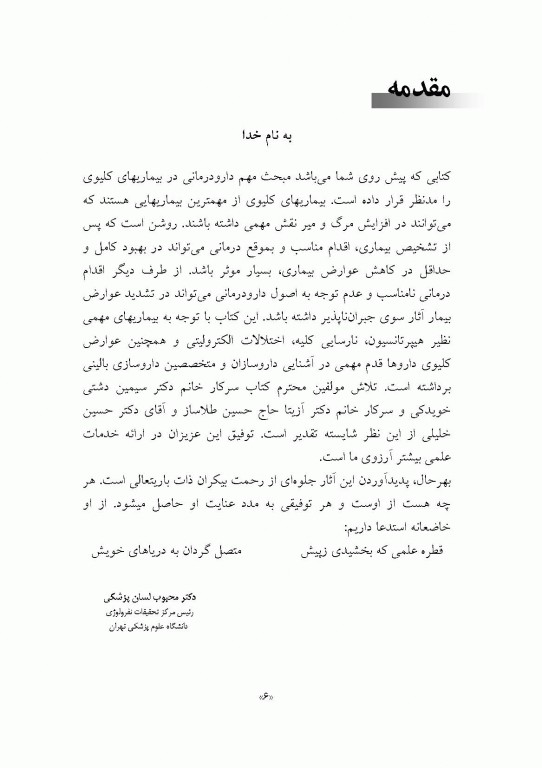 مقدمه
به نام خدا
کتابی که پیش روی شما می‌باشد مبحث مهم دارودرمانی در بیماریهای کلیوی
را مدنظر قرار داده است. بیماریهای کلیوی از مهمترین بیماریهایی هستند که
می‌توانند در افزایش مرگ و میر نقش مهمی داشته باشند. روشن است که پس
از تشخیص بیماری، اقدام مناسب و بموقع درمانی می‌تواند در بهبود کامل و
حداقل در کاهش عوارض بیماری، بسیار موثر باشد. از طرف دیگر اقدام
درمانی نامناسب و عدم توجه به اصول دارودرمانی می‌تواند در تشدید عوارض
بیمار آثار سوی جبران‌ناپذیر داشته باشد. این کتاب با توجه به بیماریهای مهمی
نظیر هیپرتانسیون، نارسایی کلیه، اختلالات الکترولیتی و همچنین عوارض
کلیوی داروها قدم مهمی در آشنایی داروسازان و متخصصین داروسازی بالینی
برداشته است. تلاش مولفین محترم کتاب سرکار خانم دکتر سیمین دشتی
خویدکی و سرکار خانم دکتر آزیتا حاج حسین طلاساز و آقای دکتر حسین
خلیلی از این نظر شایسته تقدیر است. توفیق این عزیزان در ارائه خدمات
علمی بیشتر آرزوی ما است.
بهرحال، پدیدآوردن این آثار جلوه‌ای از رحمت بیکران ذات باریتعالی است. هر
چه هست از اوست و هر توفیقی به مدد عنایت او حاصل میشود. از او
خاضعانه استدعا داریم:
قطره علمی که بخشیدی زپیش متصل گردان به دریاهای خویش
دکتر محبوب لسان پزشکی
رئیس مرکز تحقیقات نفرولوژی
دانشگاه علوم پزشکی تهران
«۶»